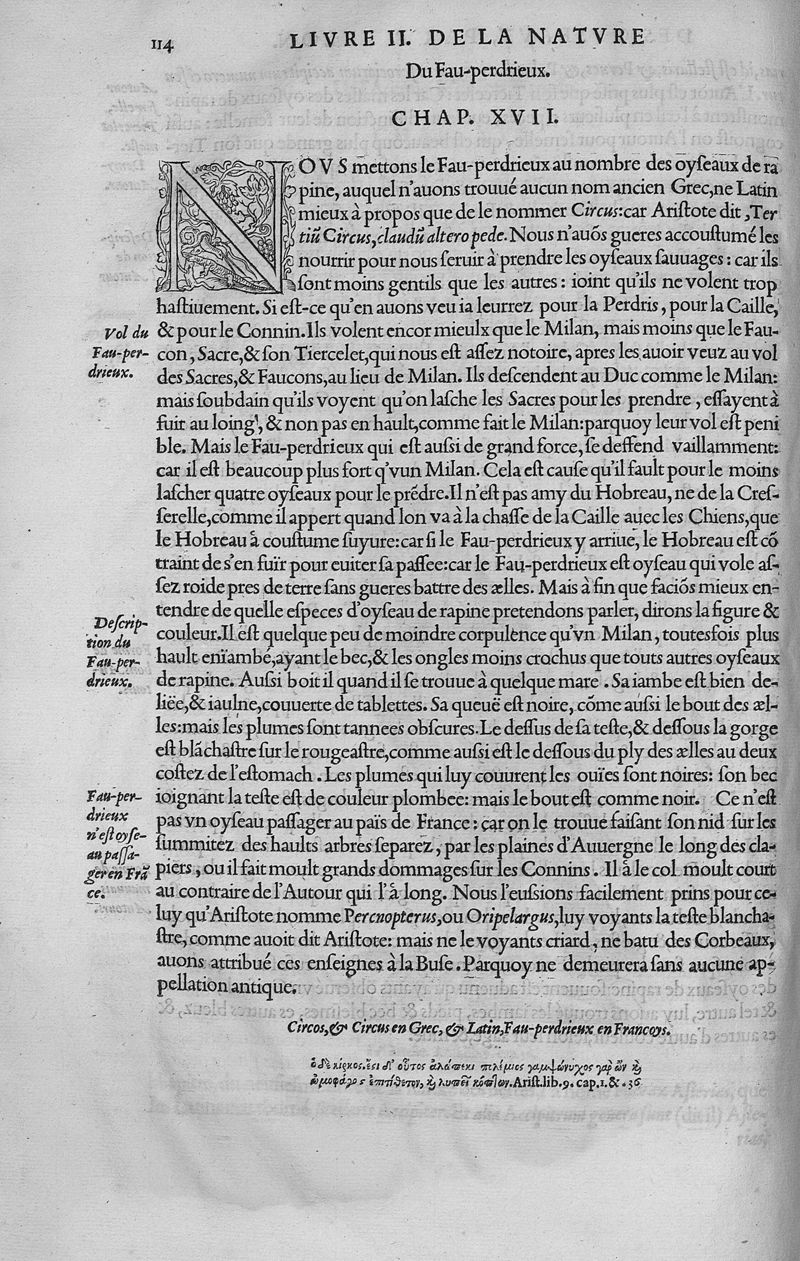 114 LIVRE II. DE LA NATVRE
Du Fau-perdrieux.
CHAP. XVII.
NOVS mettons le Fau-perdrieux au nombre des oyſeaux de ra
pine, auquel n'auons trouué aucun nom ancien Grec, ne Latin
mieux à propos que de le nommer Circus: car Ariſtote dit, Ter
tiũ Circus, claudũ altero pede. Nous n'auõs gueres accouſtumé les
nourrir pour nous ſeruir à prendre les oyſeaux ſauuages: car ils
ſont moins gentils que les autres: ioint qu'ils ne volent trop
haſtiuement. Si eſt-ce qu'en auons veu ia leurrez pour la Perdris, pour la Caille,
& pour le Connin. Ils volent encor mieulx que le Milan, mais moins que le Fau-
con, Sacre, & ſon Tiercelet, qui nous eſt aſſez notoire, apres les auoir veuz au vol
des Sacres, & Faucons, au lieu de Milan. Ils deſcendent au Duc comme le Milan:
mais ſoubdain qu'ils voyent qu'on laſche les Sacres pour les prendre, eſſayent à
fuir au loing, & non pas en hault, comme fait le Milan: parquoy leur vol eſt peni
ble. Mais le Fau-perdrieux qui eſt auſsi de grand force, ſe deffend vaillamment:
car il eſt beaucoup plus fort q'vun Milan. Cela eſt cauſe qu'il fault pour le moins
laſcher quatre oyſeaux pour le prẽdre. Il n'eſt pas amy du Hobreau, ne de la Creſ-
ſerelle, comme il appert quand lon va à la chaſſe de la Caille auec les Chiens, que
le Hobreau à couſtume ſuyure: car ſi le Fau-perdrieux y arriue, le Hobreau eſt cõ
traint de s'en fuïr pour euiter ſa paſſee: car le Fau-perdrieux eſt oyſeau qui vole aſ-
ſez roide pres de terre ſans gueres battre des ælles. Mais à fin que faciõs mieux en-
tendre de quelle eſpeces d'oyſeau de rapine pretendons parler, dirons la figure &
couleur. Il eſt quelque peu de moindre corpulence qu'vn Milan, toutesfois plus
hault eniambé, ayant le bec, & les ongles moins crochus que touts autres oyſeaux
de rapine. Auſsi boit il quand il ſe trouue à quelque mare. Sa iambe eſt bien de-
liëe, & iaulne, couuerte de tablettes. Sa queuë eſt noire, cõme auſsi le bout des æl-
les: mais les plumes ſont tannees obſcures. Le deſſus de ſa teſte, & deſſous la gorge
eſt blãchaſtre ſur le rougeaſtre, comme auſsi eſt le deſſous du ply des ælles au deux
coſtez de l'eſtomach. Les plumes qui luy couurent les ouïes ſont noires: ſon bec
ioignant la teſte eſt de couleur plombee: mais le bout eſt comme noir. Ce n'eſt
pas vn oyſeau paſſager au païs de France: car on le trouue faiſant ſon nid ſur les
ſummitez des haults arbres ſeparez, par les plaines d'Auuergne le long des cla-
piers, ou il fait moult grands dommages ſur les Connins. Il à le col moult court
au contraire de l'Autour qui l'à long. Nous l'euſsions facilement prins pour ce-
luy qu'Ariſtote nomme Percnopterus, ou Oripelargus, luy voyants la teſte blancha-
ſtre, comme auoit dit Ariſtote: mais ne le voyants criard, ne batu des Corbeaux,
auons attribué ces enſeignes à la Buſe. Parquoy ne demeurera ſans aucune ap-
pellation antique.
Vol du
Fau-per-
drieux.
Deſcrip-
tion du
Fau-per-
drieux.
Fau-per-
drieux
n'eſt oyſe-
au paſſa-
ger en Frã
ce.
Circos, & Circus en Grec, & Latin, Fau-perdrieux en Francoys.
Ariſt. lib. 9. cap. 1. & . 36